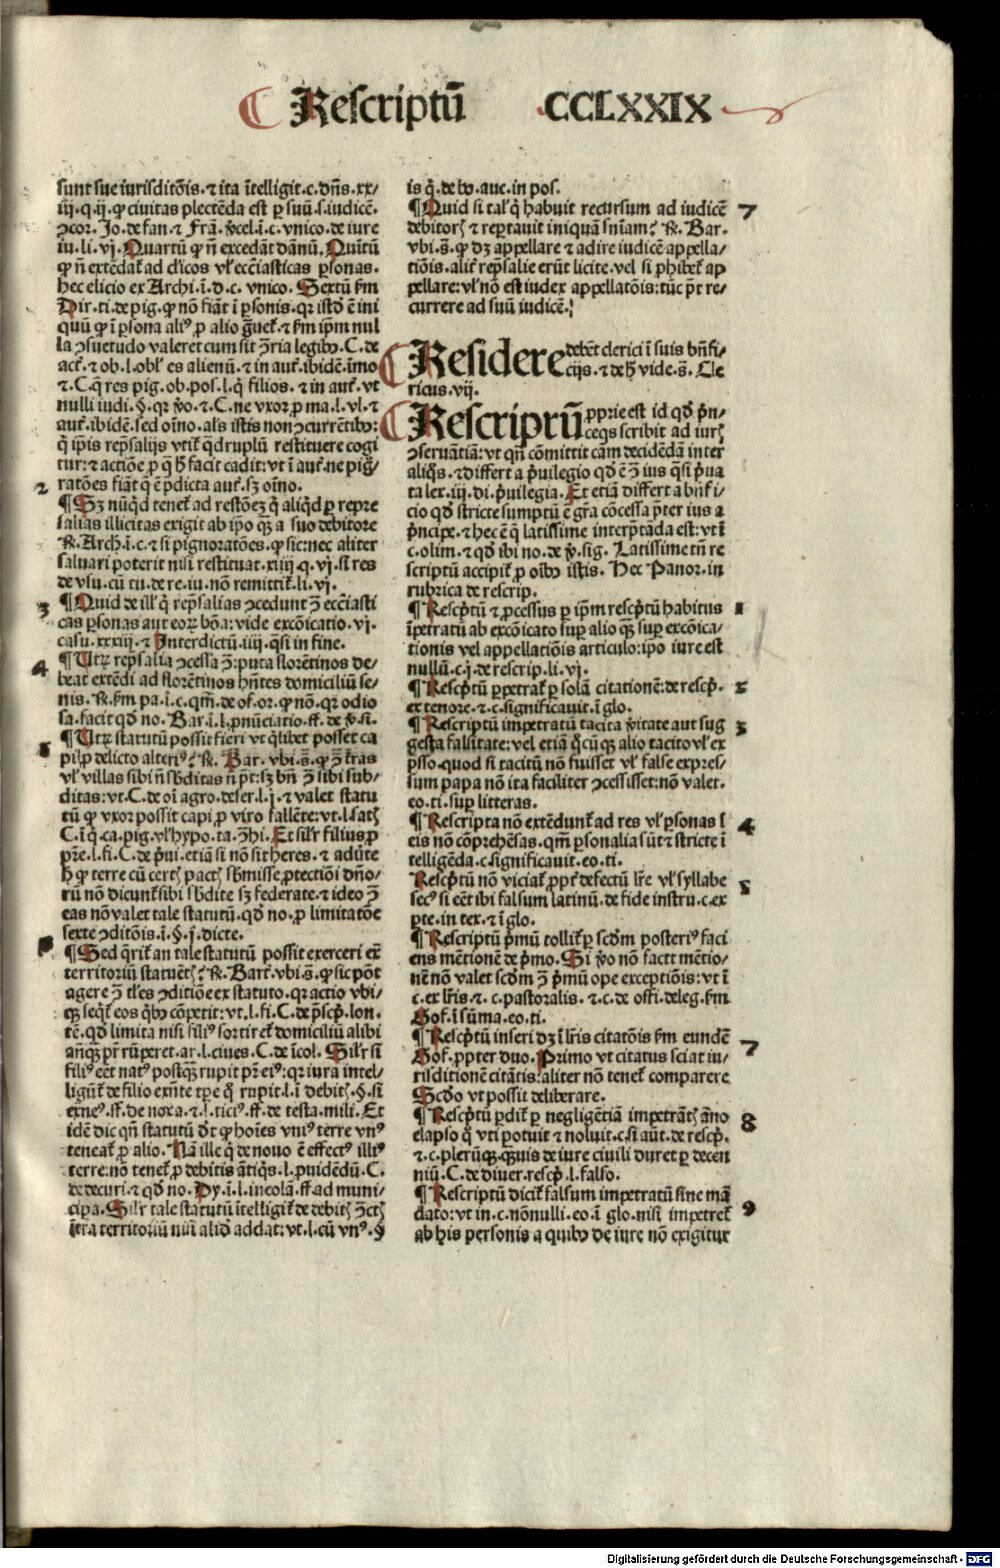 Rescriptū CCLXXIX
sunt sue iurisditōis. ⁊ ita ītelligit. c. dn̄s. xx/
iij. q. ij. ꝙ civitas plectēda est ꝑ suū. s. iudicē.
ꝯcor. Jo. de fan. ⁊ Frā. v̓cel. ī. c. vnico. de iure
iu. li. vj. Quartū ꝙ n̄ excedāt dānū. Quītū
ꝙ n̄ extēdat᷑ ad cl̓icos vl̓ ecc̄iasticas ꝑsonas.
hec elicio ex Archi. ī. d. c. vnico. Sextū ẜm
Dir. ti. de pig. ꝙ nō fiāt ī ꝑsonis. qꝛ istđ ē ini
quū ꝙ ī ꝑsona aliꝰ ꝓ alio g̃uet᷑. ⁊ ẜm ip̄m nul
la ꝯsuetudo valeret cum sit ꝯ̄ria legibꝰ. C. de
act᷑. ⁊ ob. l. obl̓ es alienū. ⁊ in aut᷑. ibidē. īmo
⁊. C. q̄ res pig. ob. pos. l. q̄ filios. ⁊ in aut᷑. vt
nulli iudi. §. qꝛ v̓o. ⁊. C. ne vxor ꝓ ma. l. vl. ⁊
aut᷑. ibidē. sed oīno. als istis non ꝯcurrētibꝰ:
q̄ ip̄is rep̄salijs vtit᷑ q̄druplū restituere cogi
tur: ⁊ actiōe ꝓ q̄ h̓ facit cadit: vt ī aut᷑. ne pig̃/
ratōes fiāt q̄ ē p̄dicta aut᷑. sꝫ oīno.
2
¶ Sꝫ nūqd tenet᷑ ad restōeꝫ q̄ aliqd ꝑ repre
salias illicitas exigit ab ip̄o qꝫ a suo debitore
R̓. Arch. ī. c. ⁊ si pignoratōes. ꝙ sic: nec aliter
saluari poterit nisi restituat. xiiij. q. vj. si res
de vsu. cū tu. de re. iu. nō remittit᷑. li. vj.
3
¶ Quid de ill̓ q̄ rep̄salias ꝯcedunt ꝯ̄ ecc̄iasti
cas ꝑsonas aut eoꝝ bōa: vide excōicatio. vj.
casu. xxxiij. ⁊ Interdictū. iiij. q̄si in fine.
4
¶ Utꝝ rep̄salia ꝯcessa ꝯ̄: puta florētinos de/
beat extēdi ad florētinos hn̄tes domiciliū se/
nis. R̓. ẜm pa. ī. c. qm̄. de of. or. ꝙ nō. qꝛ odio
sa. facit qđ no. Bar. ī. l. ꝓnūciatio. ff. de v̓. si.
5
¶ Utꝝ statutū possit fieri vt q̄libet posset ca
pi ꝓ delicto alteriꝰ? R̓. Bar. vbi. s̄. ꝙ ꝯ̄ t̓ras
vl̓ villas sibi n̄ sb̓ditas n̄ p̄t: sꝫ bn̄ ꝯ̄ sibi sub/
ditas: vt. C. de oī agro. deser. l. j. ⁊ valet statu
tū ꝙ vxor possit capi ꝓ viro fallēte: vt. l. satꝭ
C. ī q̄. ca. pig. vl̓ hypo. ta. ꝯ̄hi. Et sil̓r filius ꝓ
pr̄e. l. fi. C. de p̄ui. etiā si nō sit heres. ⁊ adūte
h̓ ꝙ terre cū certꝭ pactꝭ sb̓misse ꝓtectiōi dn̄o/
rū nō dicunt᷑ sibi sb̓dite sꝫ federate. ⁊ ideo ꝯ̄
eas nō valet tale statutū. qđ no. ꝓ limitatōe
sexte ꝯditōis. ī. §. j. dicte.
¶ Sed q̄rit᷑ an tale statutū possit exerceri ex̄
territoriū statuētꝭ? R̓. Bart᷑. vbi. s̄. ꝙ sic pōt
agere ꝯ̄ tl̓es ꝯditiōe ex statuto. qꝛ actio vbi/
qꝫ seqt᷑ eos q̄bꝰ cōpetit: vt. l. fi. C. de p̄scp̄. lon.
tē. qđ limita nisi filiꝰ sortiret᷑ domiciliū alibi
an̄qꝫ pr̄ rūperet. ar. l. ciues. C. de īcol. Sil̓r si
filiꝰ eēt natꝰ postqꝫ rupit pr̄ eiꝰ: qꝛ iura intel/
ligūt᷑ de filio exn̄te tꝑe q̄ rupit. l. ī debitꝭ. §. si
exneꝰ. ff. de noxa. ⁊. l. ticiꝰ. ff. de testa. mili. Et
idē dic qn̄ statutū d̓t ꝙ hoīes vniꝰ terre vnꝰ
teneat᷑ ꝓ alio. Nā ille q̄ de nouo ē effectꝰ illiꝰ
terre: nō tenet᷑ ꝓ debitis ātiq̄s. l. ꝓuidēdū. C.
de decuri. ⁊ qđ no. Dy. ī. l. incolā. ff. ad muni/
cipa. Sil̓r tale statutū ītelligit᷑ de debitꝭ ꝯ̄ctꝭ
ītra territoriū nūi aliđ addat: vt. l. cū vnꝰ. §
is q̄. de bo. auc. in pos.
¶ Quid si tal̓ q̄ habuit recursum ad iudicē 7
debitorꝭ ⁊ rep̄tauit iniquā sn̄iam? R̓. Bar.
vbi. s̄. ꝙ dꝫ appellare ⁊ adire iudicē appella/
tiōis. alit᷑ rep̄salie erūt licite. vel si ꝓhibet᷑ ap
pellare: vl̓ nō est iudex appellatōis: tūc p̄t re/
currere ad suū iudicē.
Residere debēt clerici ī suis bn̄fi/
cijs. ⁊ de h̓ vide. s̄. Cle
ricus. vij.
Rescriptū ꝓprie est id qđ p̄n/
ceps scribit ad iurꝭ
ꝯseruātiā: vt qn̄ cōmittit cām decidēdā inter
aliq̄s. ⁊ differt a p̄uilegio qđ ē ꝯ̄ ius q̄si p̄ua
ta lex. iij. di. p̄uilegia. Et etiā differt a bn̄fi/
cio qđ stricte sumptū ē gr̄a cōcessa p̄ter ius a
p̄ncipe. ⁊ hec ē q̄ latissime interp̄tāda est: vt ī
c. olim. ⁊ qđ ibi no. de v̓. sig. Latissime tn̄ re
scriptū accipit᷑ ꝓ oībꝰ istis. Hec Panor. in
rubrica de rescrip.
¶ Rescp̄tū ⁊ ꝓcessus ꝑ ip̄m rescp̄tū habitus 1
īpetratū ab excōicato suꝑ alio qꝫ suꝑ excōica/
tionis vel appellatiōis articulo: ipo iure est
nullū. c. j. de rescrip. li. vj.
¶ Rescp̄tū ꝑpetrat᷑ ꝑ solā citationē: de rescp̄. 2
ex tenore. ⁊. c. significauit. ī glo.
¶ Rescriptū impetratū tacita v̓itate aut sug 3
gesta falsitate: vel etiā q̄cūqꝫ alio tacito vl̓ ex
p̄sso. quod si tacitū nō fuisset vl̓ false expres/
sum papa nō ita faciliter ꝯcessisset: nō valet.
eo. ti. suꝑ litteras.
¶ Rescripta nō extēdunt᷑ ad res vl̓ ꝑsonas ī 4
eis nō cōprehēsas. qm̄ ꝑsonalia sūt ⁊ stricte ī
telligēda. c. significauit. eo. ti.
Rescp̄tū nō viciat᷑ ꝓpt᷑ defectū lr̄e vl̓ syllabe 5
secꝰ si eēt ibi falsum latinū. de fide instru. c. ex
pte. in tex. ⁊ ī glo.
¶ Rescriptū p̄mū tollit᷑ ꝑ scđm posteriꝰ faci
ens mētionē de p̄mo. Si v̓o nō facit mētio/
nē nō valet scđm ꝯ̄ p̄mū ope exceptiōis: vt ī
c. ex lr̄is. ⁊. c. pastoralis. ⁊. c. de offi. deleg. ẜm
Gof. ī sūma. eo. ti.
¶ Rescp̄tū inseri dꝫ ī lr̄is citatōis ẜm eundē 7
Gof. ꝓpter duo. Primo vt citatus sciat iu/
risditionē citātis: aliter nō tenet᷑ comparere
Scđo vt possit deliberare.
¶ Rescp̄tū ꝑdit᷑ ꝑ negligētiā impetrātꝭ āno 8
elapso q̄ vti potuit ⁊ noluit. c. si aūt. de rescp̄.
⁊. c. plerūqꝫ. qꝫuis de iure ciuili duret ꝑ decen
niū. C. de diuer. rescp̄. l. falso.
¶ Rescriptū dicit᷑ falsum impetratū sine mā 9
dato: vt in. c. nōnulli. eo. ī glo. nisi impetret᷑
ab his personis a quibꝰ de iure nō exigitur
Digitalisierung gefördert durch die Deutsche Forschungsgemeinschaft - DFG